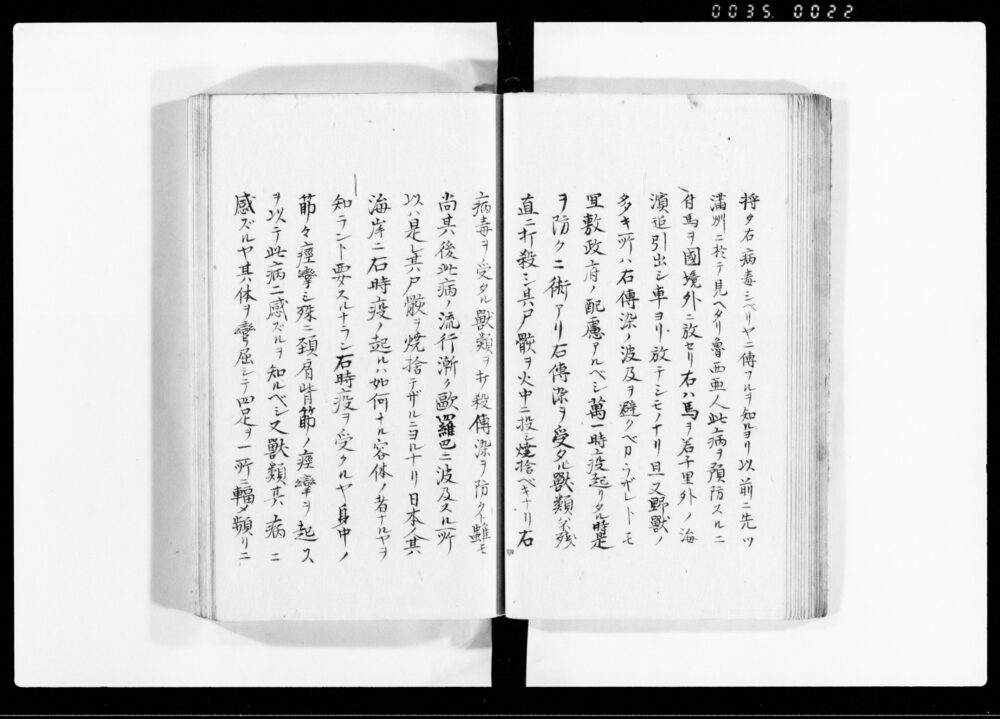 0035. 0022
将タ右病毒シベリヤニ傳フルヲ知ルヨリ以前ニ先ツ
満州ニ於テ見ヘタリ魯西亜人此病ヲ預防スルニ
付馬ヲ國境外ニ放セリ右ハ馬ヲ若干里外ノ海
濱迄引出シ車ヨリ放テシモノナリ且又野獣ノ
多キ所ハ右傳染ノ波及ヲ避クベカラザレトモ
宜敷政府ノ配慮アルベシ萬一時疫起リタル時是
ヲ防クニ術アリ右傳染ヲ受タル獣類不残
直ニ打殺シ其尸骸ヲ火中ニ投シ焼捨ベキナリ右
病毒ヲ受タル獣類ヲ打殺傳染ヲ防クト雖モ
尚其後此病ノ流行漸ク歐羅巴ニ波及スル所
以ハ是レ其尸骸ヲ焼捨テザルニヨルナリ日本ノ其
海岸ニ右時疫ノ起ルハ如何ナル容体ノ者ナルヤヲ
知ラント要スルナラン右時疫ヲ受クルヤ身中ノ
節々痙攣シ殊ニ頚肩背節ノ痙攣ヲ起ス
ヲ以テ此病ニ感ズルヲ知ルベシ又獣類其病ニ
感ズルヤ其体ヲ彎屈シテ四足ヲ一所ニ輻メ頻リニ